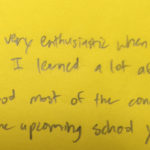 very enthusiastic when
I learned a lot
most of the
upcoming school